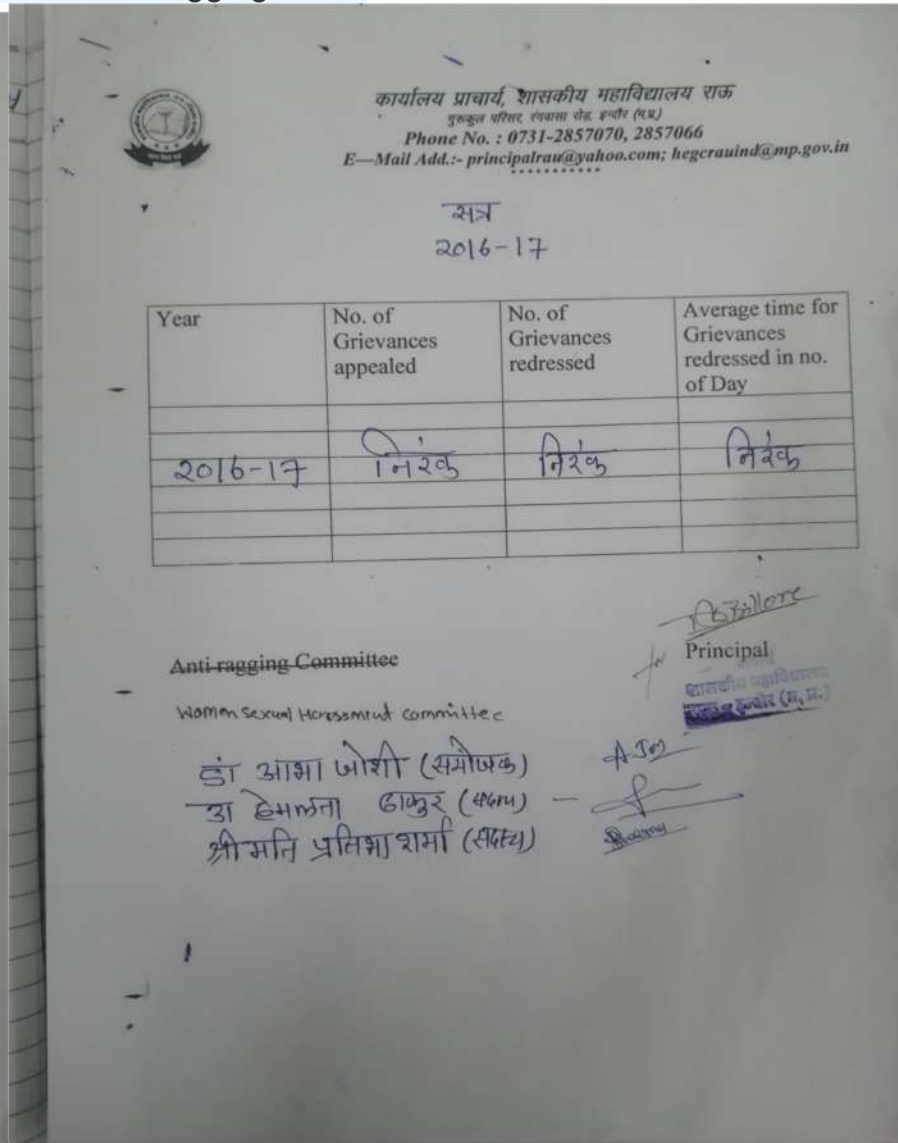 कार्यालय प्राचार्य, शासकीय महाविद्यालय राऊ
गुरुकुल परिसर, रंगवासा रोड, इन्दौर (म.प्र.)
Phone No. : 0731-2857070, 2857066
E—Mail Add.:- principalrau@yahoo.com; hegcrauind@mp.gov.in
***********
सत्र
2016-17
Year No. of Grievances appealed No. of Grievances redressed Average time for Grievances redressed in no. of Day
2016-17 निरंक निरंक निरंक
Principal
Anti-ragging Committee
शासकीय महाविद्यालय
इन्दौर (म. प्र.)
Women Sexual Haressment committee
डां आभा जोशी (संयोजक)
डा हेमलता ठाकुर (सदस्य) —
श्रीमति प्रतिभा शर्मा (सदस्य)